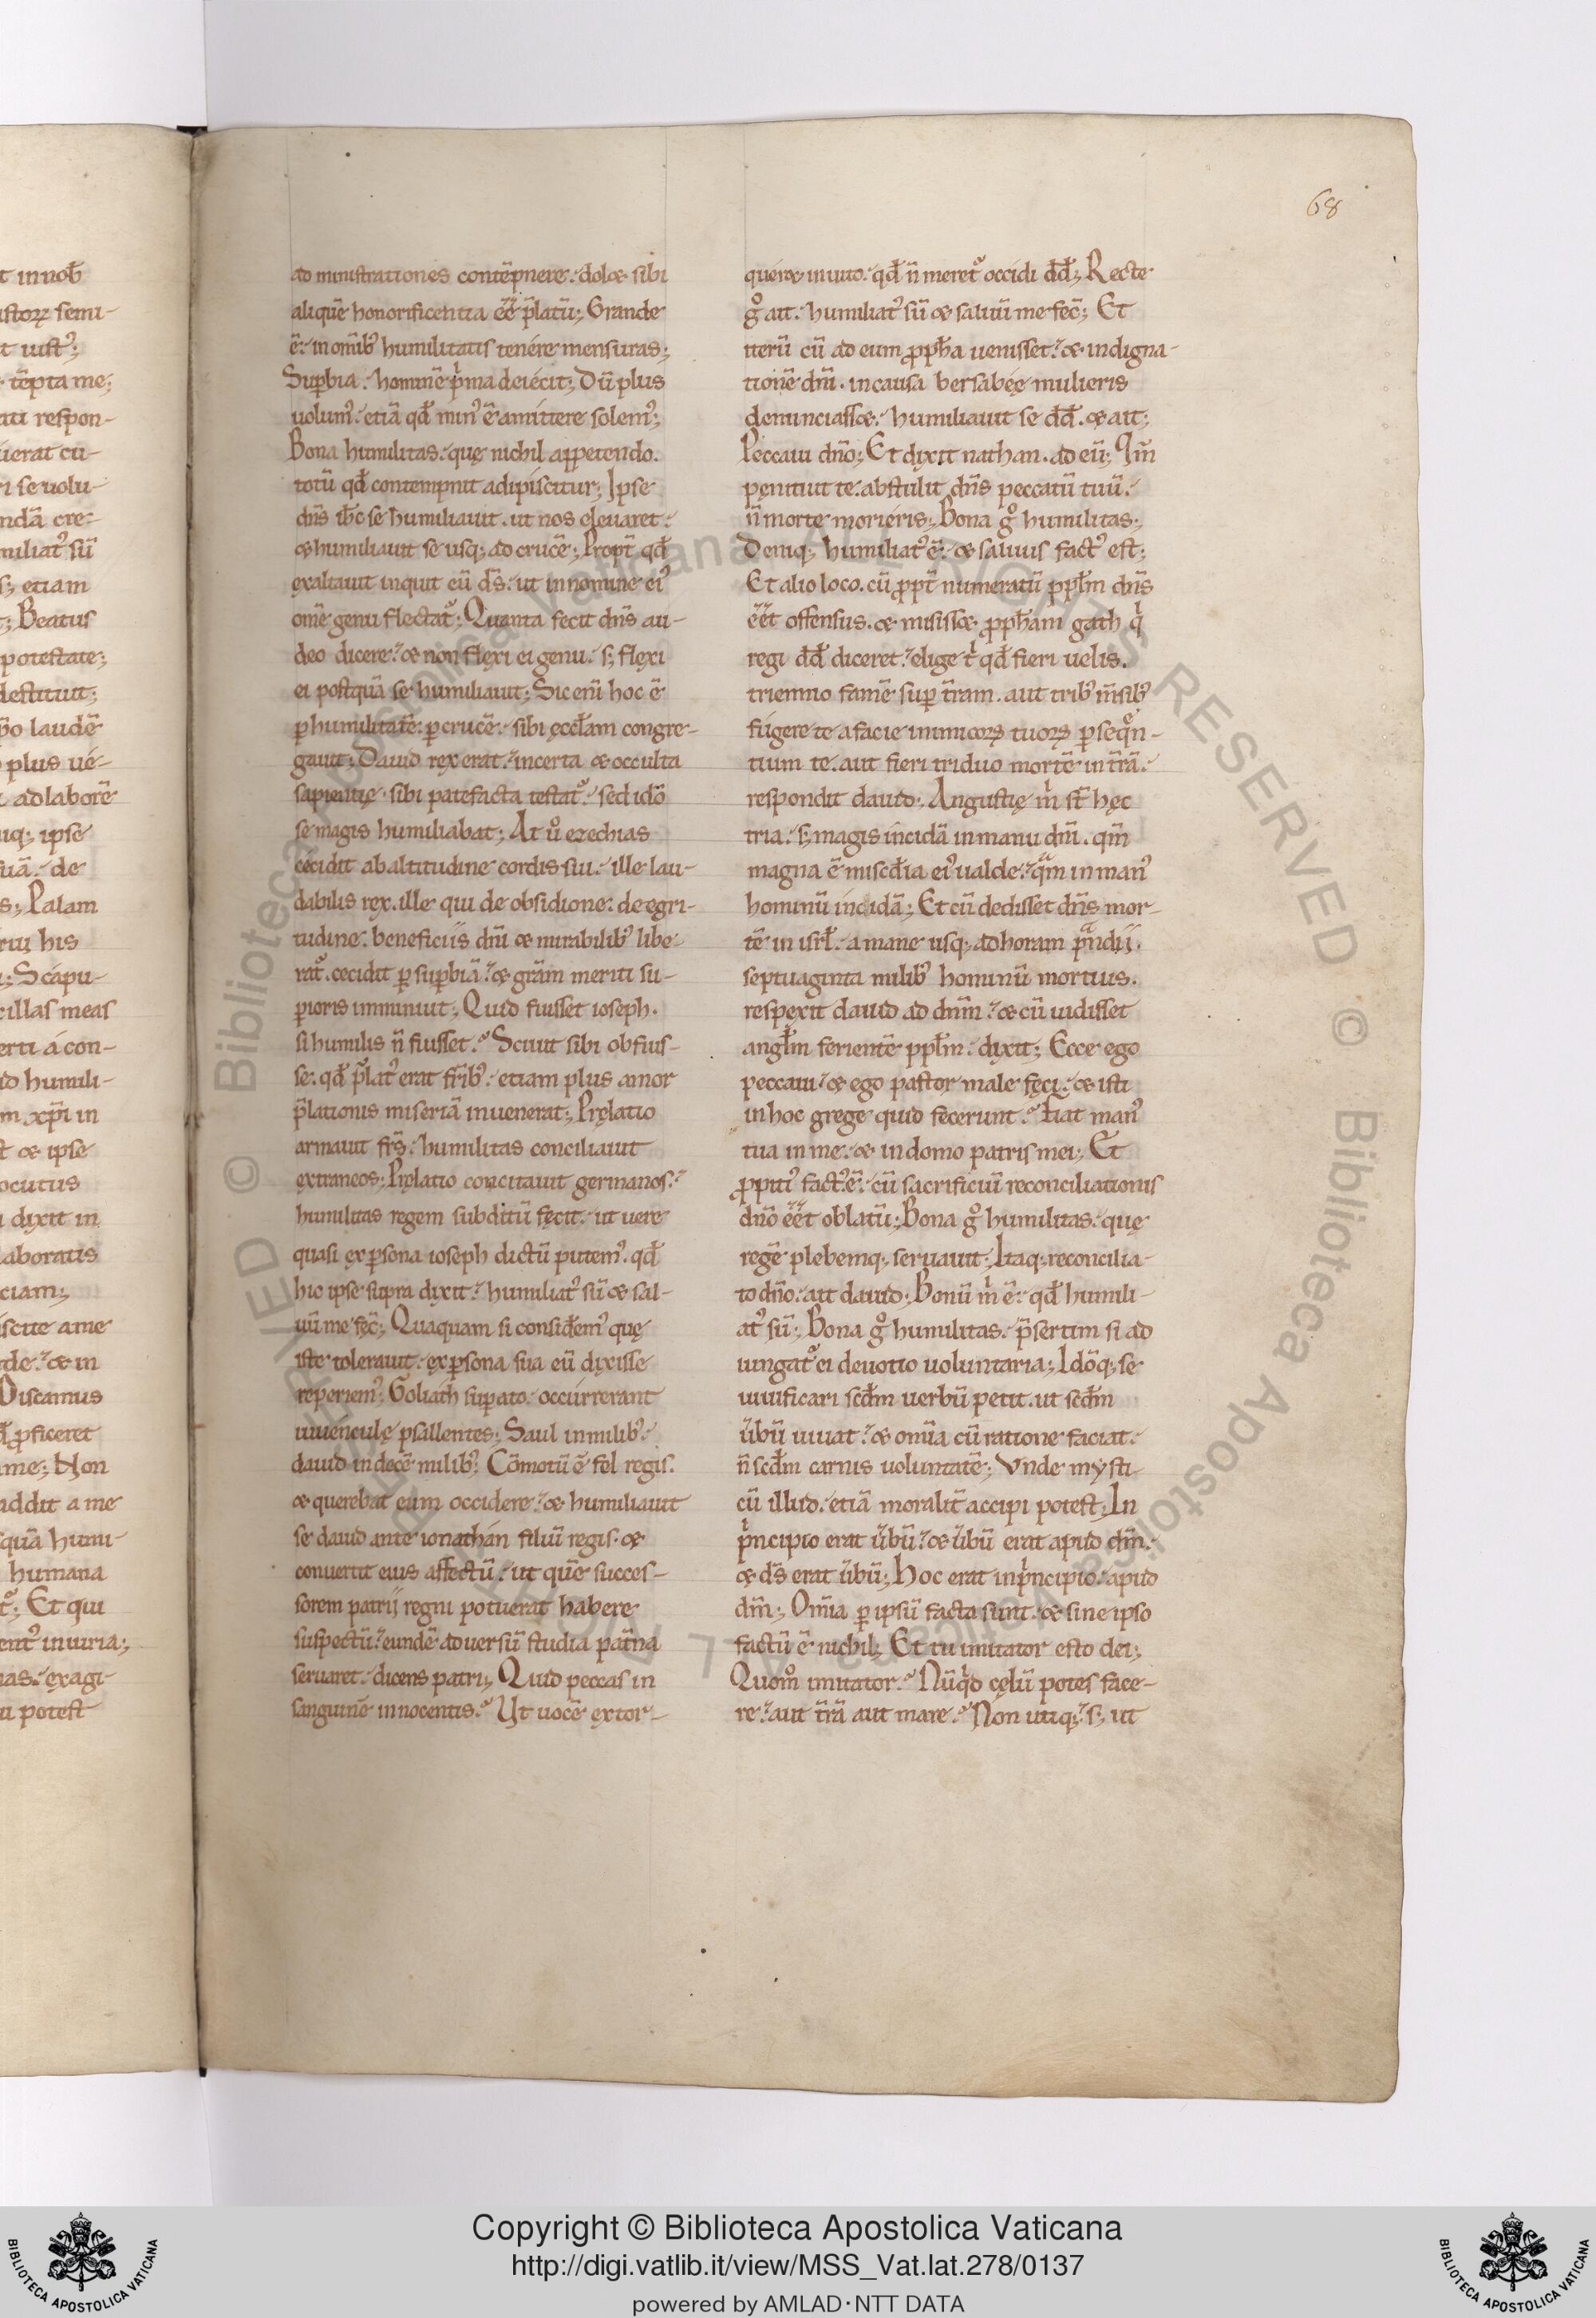 68
t in nob̄
istoꝝ semi-
t iust᾽;
tēpta me;
ati respon-
uerat cū-
ri se uolu-
ndā cre-
miliat᾽ sū
s; etiam
t; Beatus
potestate;
destituit;
p̄o laudē
plus ué-
ad laborē
uq; ipse
suā. de
s; Palam
rui his
Scápu-
cillas meas
erti á con-
id humili-
m xp̄i in
t & ipse
ocutus
dixit in
laboratis
ciam;
iscite a me
de. & in
Discamus
ꝓficeret
me; Non
addit a me
squā humi-
humana
Et qui
ent᾽ iniuria;
nas. exagi-
u potest
administrationes contēpnere. dol& sibi
aliquē honorificentia ēē p̄latū; Grande
ē. in omīb᾽ humilitatis tenére mensuras;
Suꝑbia. hominē p̍ma deiécit; Dū plus
uolum᾽. etiā qd̄ min᾽ ē amittere solem᾽;
Bona humilitas. quę nichil appetendo.
totū qd̄ contempnit adipiscitur; Ipse
dn̄s ih̄c se humiliauit. ut nos eleuaret.
& humiliauit se usq; ad crucē; Propt̄ qd̄
exaltauit inquit eū d̄s. ut in nomine ei᾽
om̄e genu flectat᷑; Quanta fecit dn̄s au-
deo dicere. & non flexi ei genu. s; flexi
ei postquā se humiliauit; Sic enī hoc ē
ꝑ humilitatē. ꝑ crucē. sibi ęccl̄am congre-
gauit; Dauid rex erat. incerta & occulta
sapientię. sibi patefacta testat᷑. sed idō
se magis humiliabat; At uͦ ezechias
cécidit ab altitudine cordis sui. ille lau-
dabilis rex. ille qui de obsidione. de egri-
tudine. beneficiis dn̄i & mirabilib᾽ libe-
rat᷑. cecidit ꝑ suꝑbiā. & gr̄am meriti su-
ꝑioris imminuit; Quid fuisset ioseph.
si humilis n̄ fuisset. Sciuit sibi obfuis-
se. qd̄ p̄lat᾽ erat fr̄ib᾽. etiam plus amor
p̄lationis miseriā inuenerat; Pręlatio
armauit fr̄s. humilitas conciliauit
extraneos; Pręlatio concitauit germanos.
humilitas regem subditū fęcit. ut uere
quasi ex ꝑsona ioseph dictū putem᾽. qd̄
hic ipse supra dixit. humiliat᾽ sū & sal-
uū me fęc̄; Quaquam si consid̄em᾽ quę
iste tolerauit. ex ꝑsona sua eū dixisse
reperiem᾽; Goliath suꝑato. occúrrerant
iuuénculę psallentes; Saul in milib᾽.
dauid in decē milib᾽; Cōmotū ē fel regis.
& querebat eum occidere. & humiliauit
se dauid ante ionathán filiū regis. &
conuertit eius affectū. ut quē succes-
sorem patrij regni potuerat habere
suspectū. eundē aduersū studia pat̄na
seruaret. dicens patri; Quid peccas in
sanguinē innocentis. Ut uocē extor-
quér& inuito. qd̄ n̄ meret᷑ occidi dd̄; Recte
gͦ ait. humiliat᾽ sū & saluū me fec̄; Et
iterū cū ad eum ꝓph̄a uenisset. & indigna-
tionē dn̄i. in causa bersabéę mulieris
denunciass&. humiliauit se dd̄. & ait;
Peccaui dn̄o; Et dixit nathan. ad eū; Qm̄
pęnituit te. abstulit dn̄s peccatū tuū.
n̄ morte moriéris; Bona gͦ humilitas;
Deniq; humiliat᾽ ē. & saluus fact᾽ est;
Et alio loco. cū ꝓpt̄ numeratū ppl̄m dn̄s
ēēt offensus. & misiss& ꝓph̄am gath q̍
regi dd̄ diceret. elige t̍ qd̄ fieri uelis.
triennio famē suꝑ t̄ram. aut trib᾽ m̄sib᾽
fúgere te a facie inimicoꝝ tuoꝝ ꝑseqͦn-
tium te. aut fieri triduo mortē in t̄rā.
respondit dauid; Angustię m̍ st̄ hęc
tria. s; magis íncidā in manu dn̄i. qm̄
magna ē miscd̄ia ei᾽ ualde. qͣm in man᾽
hominū incidā; Et cū dedisset dn̄s mor-
tē in isrl̄. a mane usq; ad horam pͣndij.
septuaginta milib᾽ hominū mortuis.
respexit dauid ad dn̄m. & cū uidisset
angl̄m ferientē ppl̄m. dixit; Ecce ego
peccaui. & ego pastor male fęci. & isti
in hoc grege quid fecerunt. Fiat man᾽
tua in me. & in domo patris mei; Et
ꝓpiti᾽ fact᾽ ē. cū sacrificiū reconciliationis
dn̄o ēēt oblatū; Bona gͦ humilitas. quę
regē plebemq; seruauit; Itaq; reconcilia-
to dn̄o. ait dauid; Bonū m̍ ē. qd̄ humili-
at᾽ sū; Bona gͦ humilitas. p̄sertim si ad
iungat᷑ ei deuotio uoluntaria; Idōq; se
uiuificari scd̄m uerbū petit. ut scd̄m
ūbū uiuat. & omīa cū ratione faciat.
n̄ scd̄m carnis uoluntatē; Vnde mysti
cū illud. etiā moralit̄ accipi potest; In
p̍ncipio erat ūbū. & ūbū erat apud dm̄.
& d̄s erat ūbū; Hoc erat in p̍ncipio. apud
dm̄; Om̄ia ꝑ ipsū facta sunt. & sine ipso
factū ē nichil; Et tu imitator esto dei;
Quomͦ imitator. Nūq̍d cęlū potes face-
re. aut t̄rā aut mare. Non utiq;. s; ut
© Biblioteca Apostolica Vaticana ALL RIGHTS RESERVED © Biblioteca Apostolica Vaticana ALL RIGHTS RESERVED
Copyright © Biblioteca Apostolica Vaticana
http://digi.vatlib.it/view/MSS_Vat.lat.278/0137
powered by AMLAD·NTT DATA
BIBLIOTECA APOSTOLICA VATICANA
BIBLIOTECA APOSTOLICA VATICANA